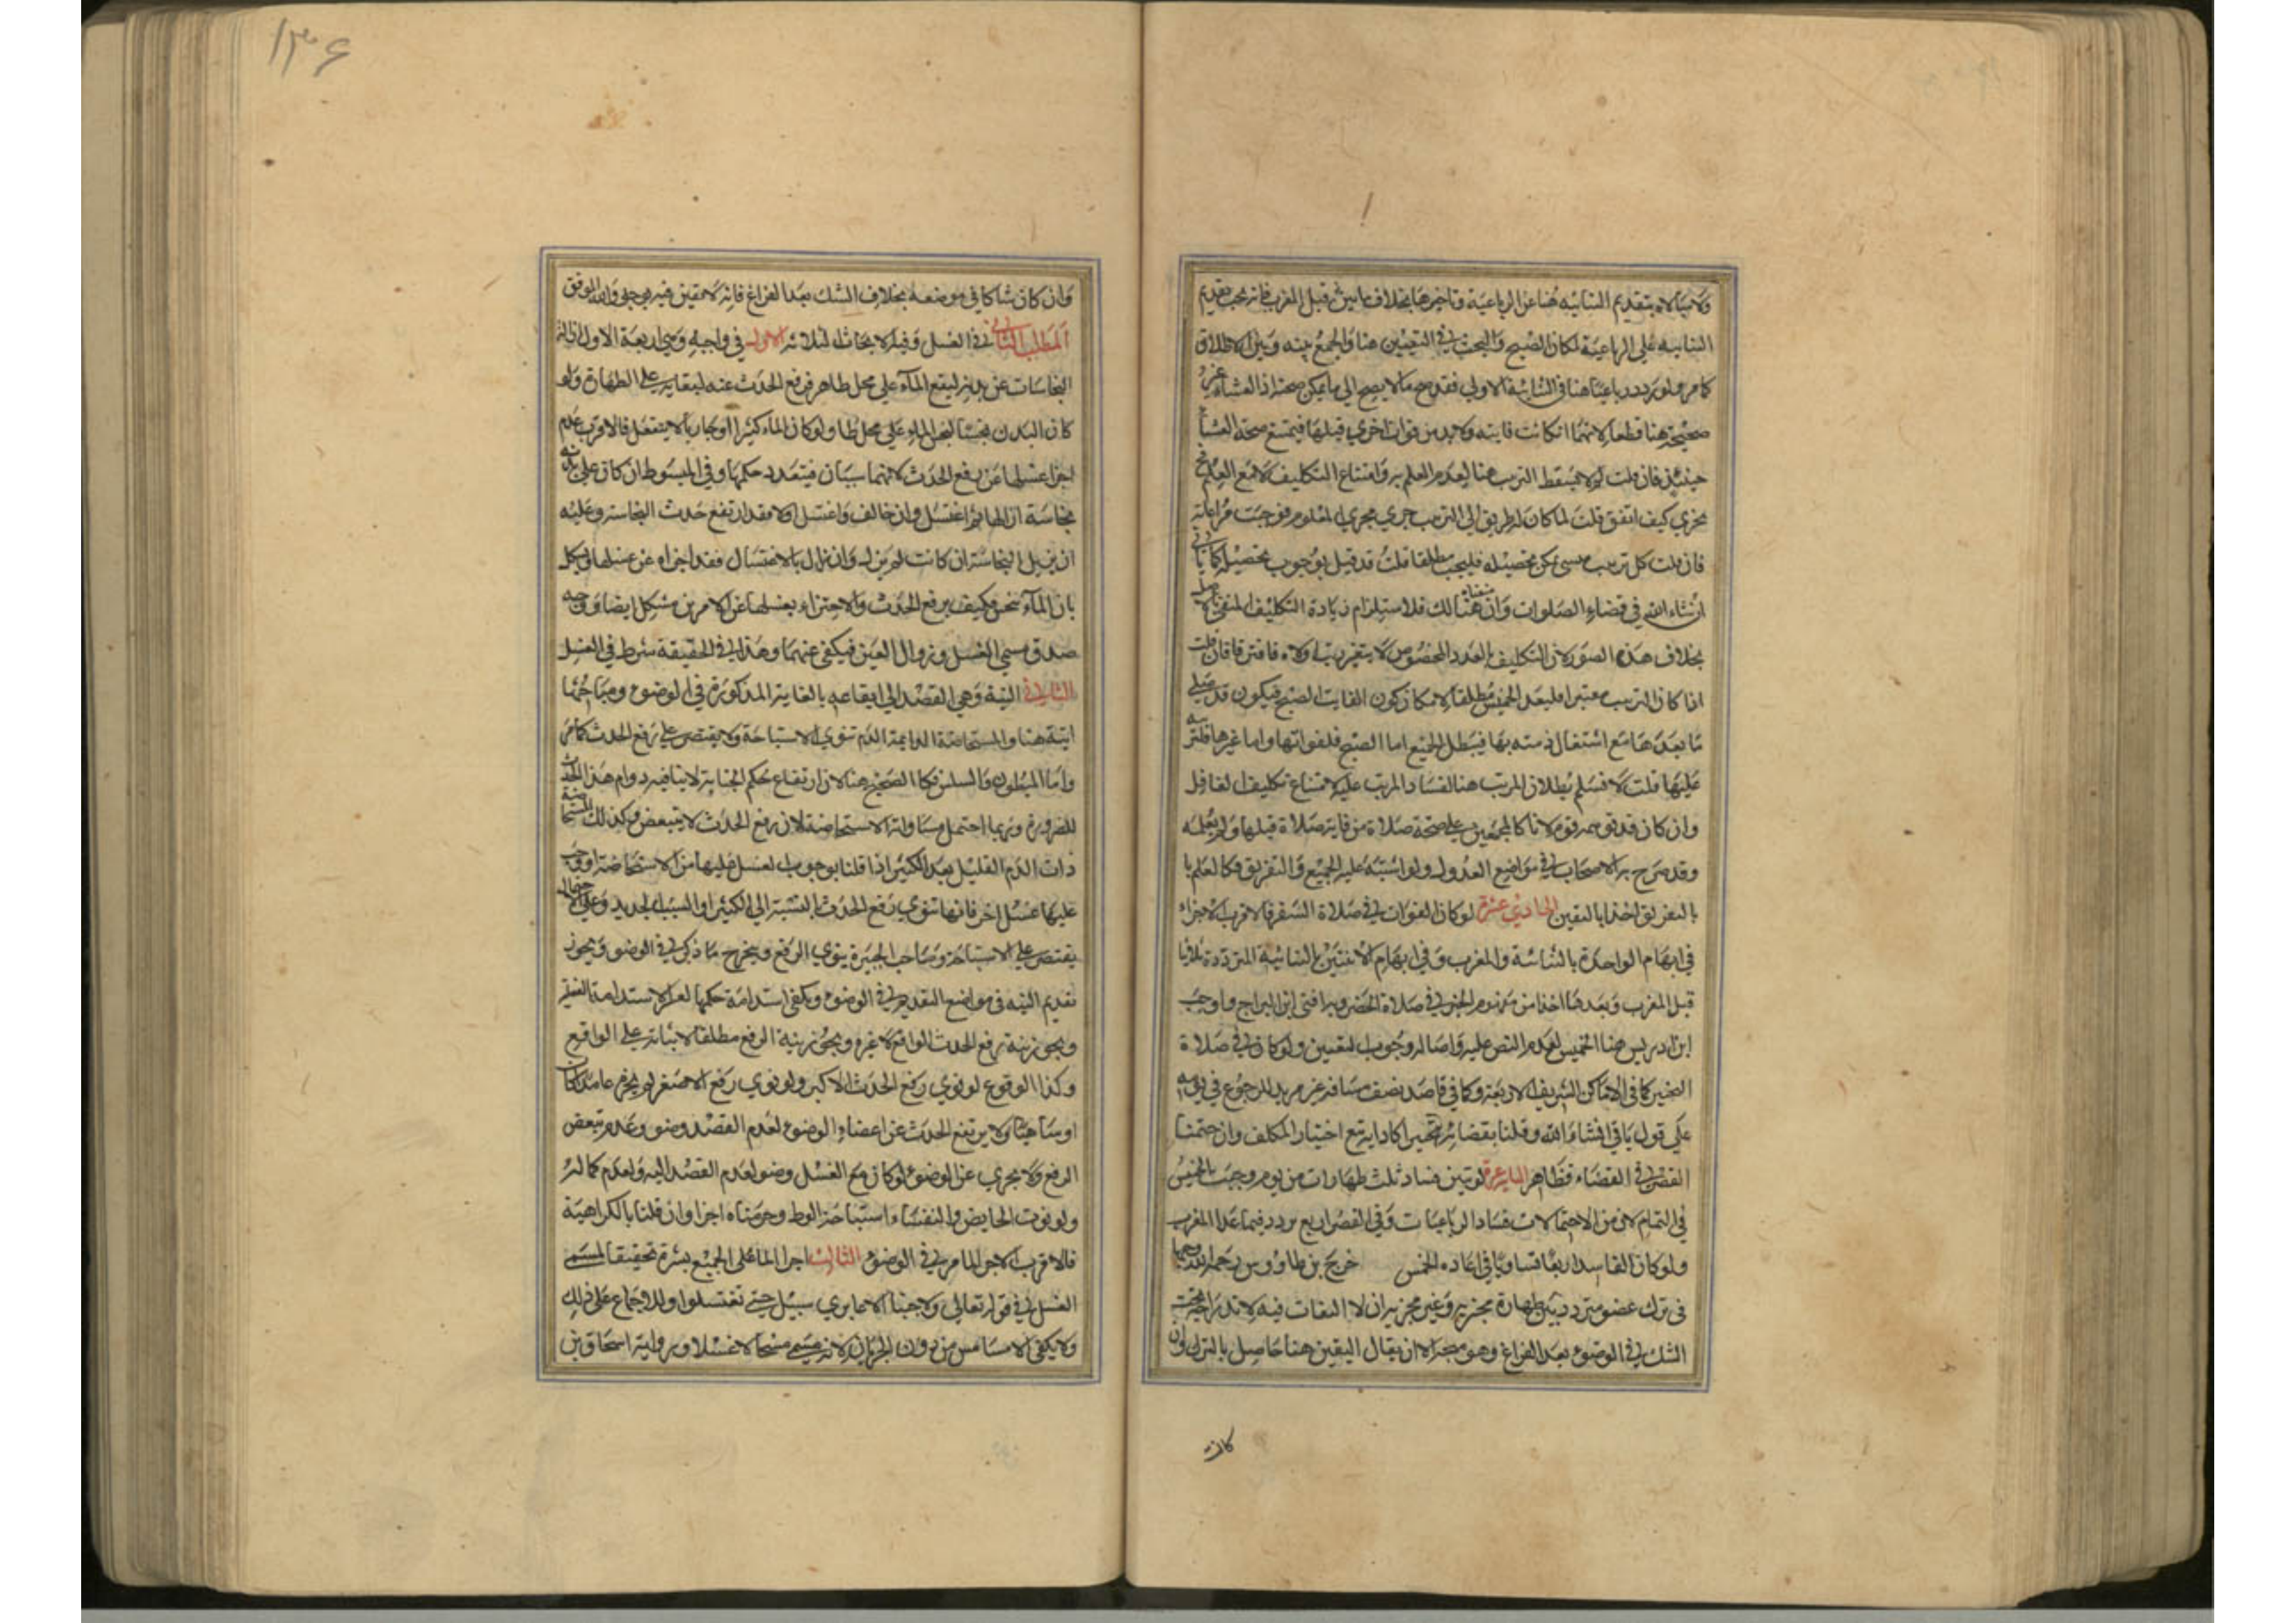 ولا مبالاة بتقديم الثنائيه هنا عن الرباعية وتاخيرها بخلاف ما بين قبل المغرب فانه يجب تقديم
الثنائيه على الرباعية لمكان الصبح والبحث في التعيين هنا والجمع بينه وبين الاطلاق
كما مر ولو ردد رباعيا هنا في الثنائية الاولى فقد ضم ما لا يصح الى ما يمكن صحته اذ العشاء غير
صحيحة هنا قطعا لانها ان كانت فايته ولا بد من فوات اخرى قبلها فيمتنع صحة العشا
حينئذ فان قلت لم لا يسقط الترتيب هنا لعدم العلم به وامتناع التكليف لا مع العلم
يجزي كيف اتفق قلت لما كان له طريق الى الترتيب جرى مجرى المعلوم فوجبت مراعاته
فان قلت كل ترتيب منسي يمكن تحصيله فليجب مطلقا قلت قد قيل بوجوب تحصيله كما ياتي
ان شاء الله في قضاء الصلوات وان هنالك فلاستلزام زيادة التكليف المنفي
بخلاف هذه الصور لان التكليف بالعدد المخصوص لا يتغير ولاء فافترقا فان قلت
اذا كان الترتيب معتبرا فليعد الخميس مطلقا لامكان كون الفايت الصبح فيكون قد صلى
ما بعدها مع اشتغال ذمته بها فيبطل الجميع اما الصبح فلفواتها واما غيرها فلترتبه
عليها قلت لا نسلم بطلان المرتب هنا لفساد المرتب عليه لامتناع تكليف الغافل
وان كان قد توهمه قوم لانا كالمجمعين على صحة صلاة من فايته صلاة قبلها ولم يعلمه
وقد صرح به الاصحاب في مواضع العدول ولو اشتبه عليه الجميع والتفريق فكالعلم با
بالتفريق اخذا باليقين الحادي عشر لو كان الفوات في صلاة السفر فالاقرب الاجزاء
في ابهام الواحدة بالثنائية والمغرب وفي ابهام الاثنتين بالثنائية المترددة ثلاثيا
قبل المغرب وبعدها اخذا من مفهوم الخبر في صلاة الحضر وبه افتى ابن البراج واوجب
ابن ادريس هنا الخميس لعدم النص عليه واصالة وجوب التعيين ولو كان في صلاة
التخيير كما في الاماكن الشريفة الاربعة وكما في قاصد نصف مسافة غير مريد للرجوع في يومه
على قول ياتي ان شاء الله وقلنا بقضائه تخييرا كادايه تبع اختيار المكلف وان حتمنا
القصر في القضاء فظاهر لو تبين فساد ثلث طهارات من يوم وجبت الخميس
في التمام لان من الاحتمالات فساد الرباعيات وفي القصر اربع يردد فيما عدا المغرب
ولو كان الفاسد اربعا تساويا في اعاده الخمس خرج بن طاووس رحمه الله
في ترك عضو متردد بين طهارة مجزيه وغير مجزيه ان لا التفات فيه لاندراجه تحت
الشك في الوضوء بعد الفراغ وهو متجه الا ان يقال اليقين هنا حاصل بالترك وان
كان
١٣۶
وان كان شاكا في موضعه بخلاف الشك بعد الفراغ فانه لا يقين فيه بوجه والله الموفق
المطلب الثاني في الغسل وفيه الابحاث الثلاثه الاول في واجبه وهي اربعة الاول ازالة
النجاسات عن بدنه ليقع المآء على محل طاهر فرفع الحدث عنه لبقايه على الطهارة ولو
كان البدن نجسا لنجس المآء على محل طاولو كان الماء كثيرا او جاريا لا ينفعل فالاقرب عدم
اجزا غسلها عن رفع الحدث لانهما سببان فيتعدد حكمها وفي المبسوط ان كان على بدنه
نجاسة ازالها ثم اغتسل وان خالف واغتسل اولا فقد ارتفع حدث الجنابة وعليه
ان يزيل النجاسة ان كانت لم تزل وان زال بالاغتسال فقد اجزاه عن غسلها ويشكل
بان المآء ينجس فكيف يرفع الحدث والاجتزاء بغسلها عن الامرين مشكل ايضا ووجه
صدق مسمى الغسل وزوال العين فيكفي عنهما وهذا في الحقيقة شرط في الغسل
الثاني النية وهي القصد الى ايقاعه بالغاية المذكورة في الوضوء ومباحثها
اتية هنا والمستحاضة الدايمة الدم تنوي الاستباحة ولا يقتصر على رفع الحدث كما مر
واما المبطون والسلس فكالصحيح هنا لان ارتفاع حكم الجنابة لا ينافيه دوام هذا الحدث
للضرورة وربما احتمل مساواته الاستحاضة لان رفع الحدث لا يتبعض وكذلك المستحاضة
ذات الدم القليل بعد الكثير اذا قلنا بوجوب الغسل عليها من الاستحاضة او وجب
عليها غسل اخر فانها تنوي رفع الحدث بالنسبة الى الكثير او السبب الجديد وعلى الاحتمال
يقتصر على الاستباحة وصاحب الجبيرة ينوي الرفع ويخرج ما ذكر في الوضو ويجوز
تقديم النيه في مواضع التقديم في الوضوء ويكفي استدامة حكمها لعسر الاستدامة
ويجوز نية رفع الحدث الواقع لا غيره ويجوز نية الرفع مطلقا لابنائه على الواقع
وكذا الوقوع لو نوى رفع الحدث الاكبر ولو نوى رفع الاصغر لم يجز عامدا كان
او ساهيا ولا يرتفع الحدث عن اعضاء الوضوء لعدم القصد وضو وعدم تبعض
الرفع ولا يجزي عن الوضوء لو كان مع الغسل وضو لعدم القصد اليه ولعدم كماله
ولو نوت الحايض والنفساء استباحة الوط وحرمناه اجزا وان قلنا بالكراهية
فالاقرب الاجزا لما مر في الوضوء الثالث اجرا الماء على الجميع بشرة تحقيقا لمسمى
الغسل في قوله تعالى ولا جنبا الا عابري سبيل حتى تغتسلوا وللاجماع على ذلك
ولا يكفي الامساس من دون الجريان لانه يسمى مسحا لا غسلا ورواية اسحاق بن